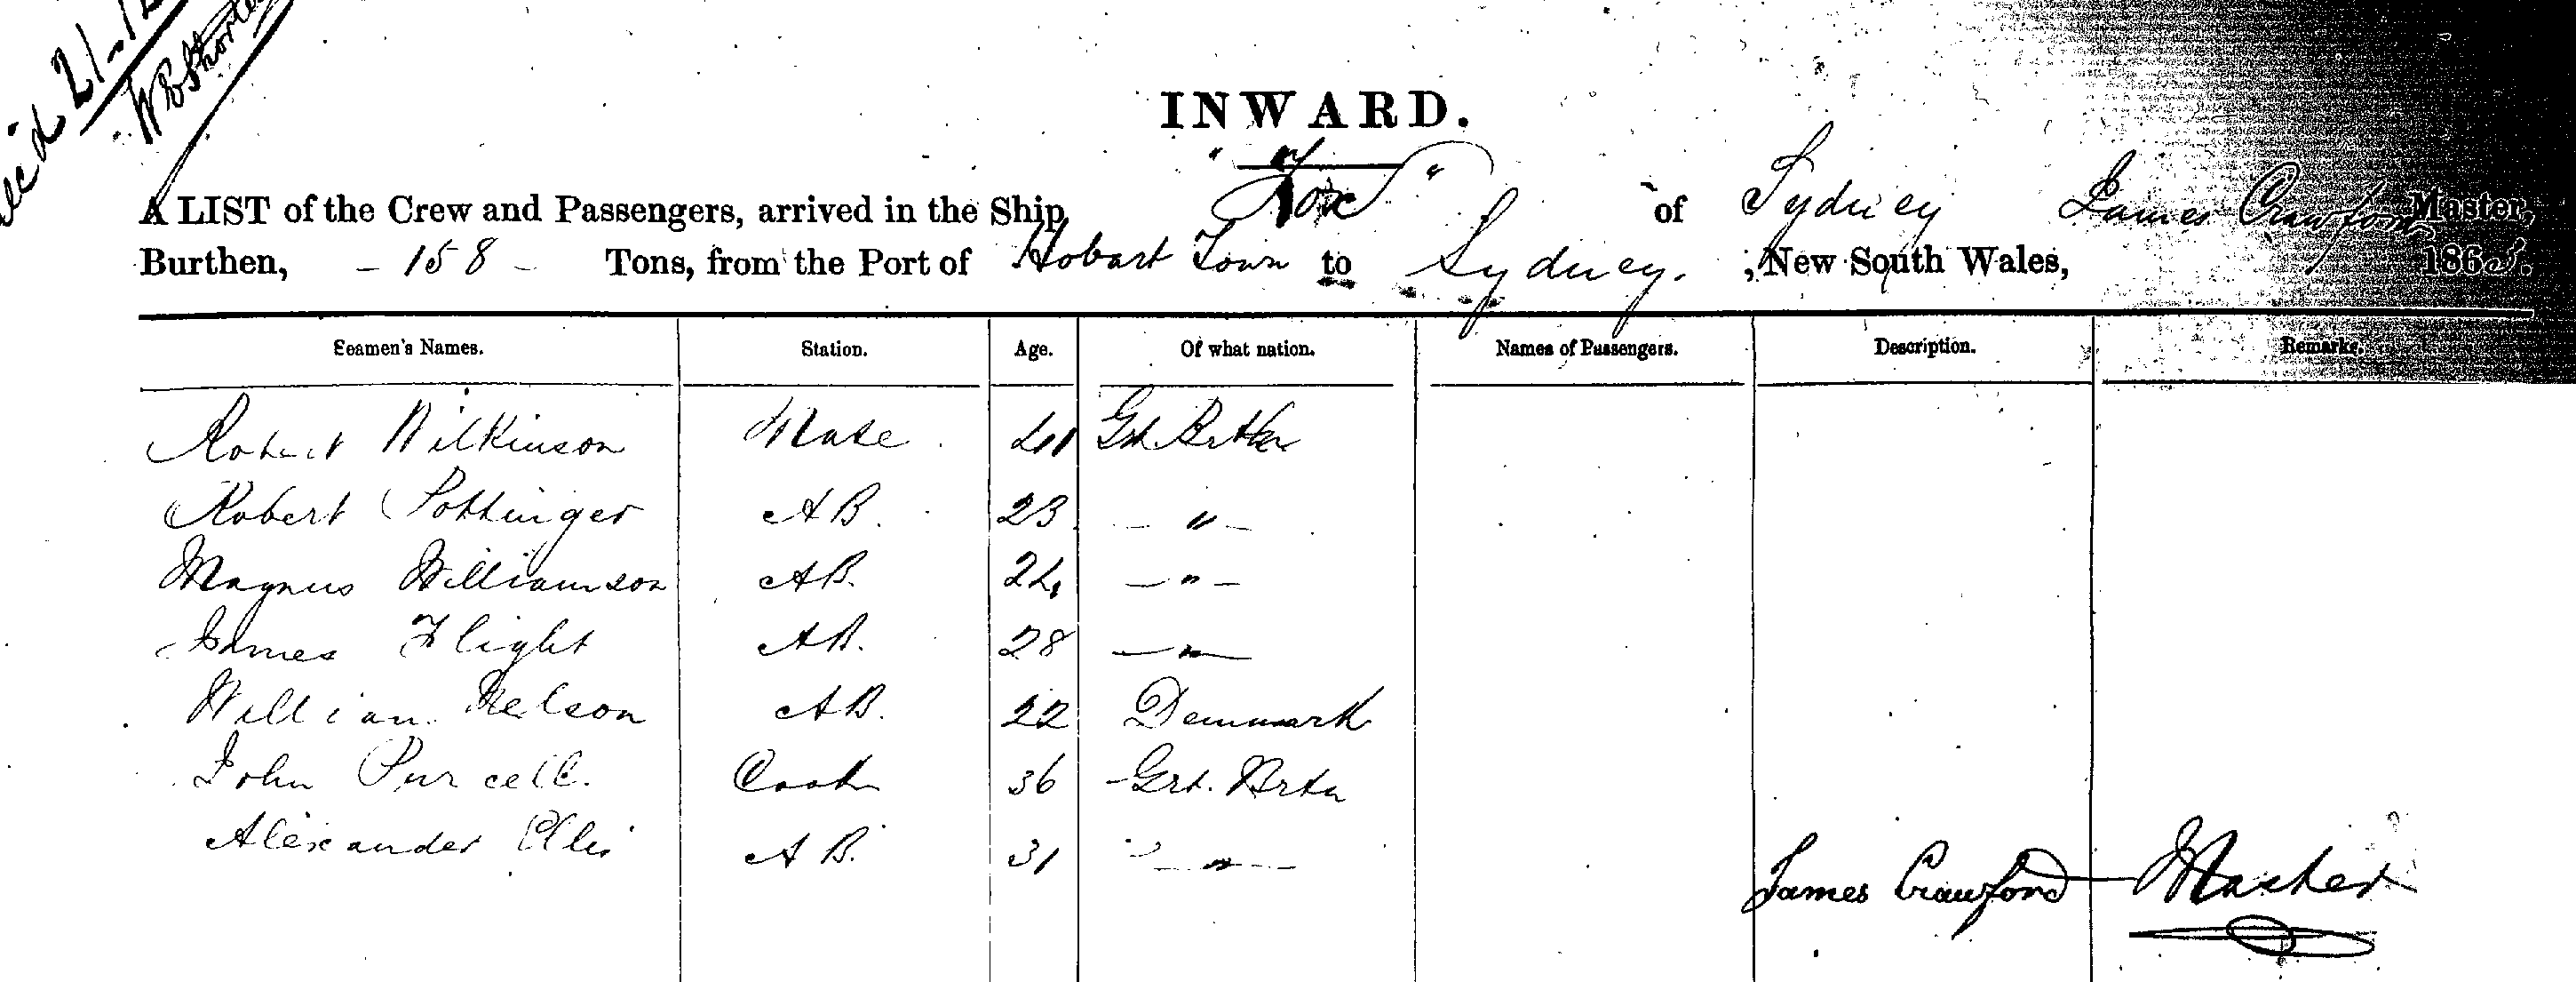 21-
INWARD.
A LIST of the Crew and Passengers, arrived in the Ship "Fox" of Sydney James Crawford Master,
Burthen, - 158 - Tons, from the Port of Hobart Town to Sydney. , New South Wales, 1865.
Seamen's Names. Station. Age. Of what nation. Names of Passengers. Description. Remarks.
Robert Wilkinson Mate. 41 Grt Brtn
Robert Pottinger AB. 23 - " -
Magnus Williamson AB. 24 - " -
James Flight AB. 28 - " -
William Nelson AB. 22 Denmark
John Purcell. Cook 36 Grt. Brtn
Alexander Ellis AB. 31 - " -
James Crawford Master